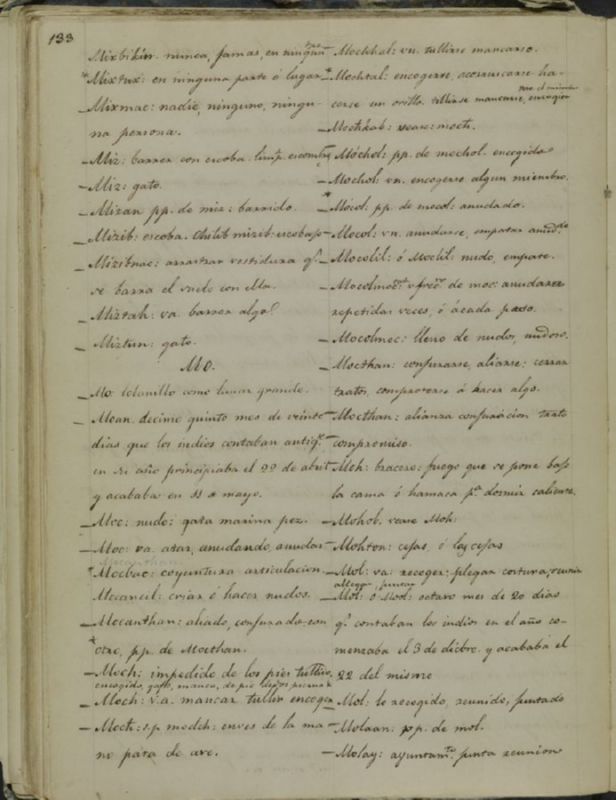 133
Mixbikin. nunca, jamas, en ningun
Mixtux: en ninguna parte ó lugar
Mixmac: nadie, ninguno, ningu-
na persona.
Miz: barrer con escoba. limp.
Miz: gato.
Mizan pp. de miz: barrido.
Mizib: escoba. Chilib mizib: escobajo
Mizibnac: arrastrar vestidura q.e
se barra el suelo con ella.
Miztah: va. barrer algo.
Miztun: gato.
MO.
Mo: lobanillo como lunar grande.
Moan. decimo quinto mes de veinte
dias que los indios contaban antig.te
en su año principiaba el 22 de abril
y acababa en 11 de mayo.
Moc: nudo: gata marina pez.
Moc: va. atar, anudando, anudar
Mocbac: coyuntura articulacion
Mocancil: criar ó hacer nudos.
Mocanthan: aliado, conjurado con
otro, pp. de Mocthan.
Moch: impedido de los pies tullido,
encogido, gafo, manco, de pie
Moch: v.a. mancar tullir encoger
Moch: s.p. moch: enves de la ma
no pata de ave.
Mochhal: vn. tullirse mancarse.
Mochtal: encogerse, acurrucarse ha-
cerse un ovillo tullirse mancarse, encoger
se el miembro
Mochkab: vease: moch.
Móchol: pp. de mochol. encogido
Mochol: vn. encogerse algun miembro.
Mócol. pp. de mocol: anudado.
Mocol: vn. anudarse, empatar
Mocolil: ó Mochil: nudo, empate.
de moc: anudarse
repetidas veces, ó á cada paso.
Mocolmoc: lleno de nudos, nudoso.
Mocthan: conjurarse, aliarse: cerrar
tratos, comprometerse á hacer algo.
Mocthan: alianza conjuracion trato
compromiso.
Moh: bracero: fuego que se pone bajo
la cama ó hamaca p.a dormir caliente.
Mohob. vease Moh.
Mohton: cejas, ó las cejas
Mol: va: recoger: plegar costura, reunir
allegar, juntar
Mol: ó Mool: octavo mes de 20 dias
q.e contaban los indios en el año co-
menzaba el 3 de dicbre. y acababa el
22 del mismo
Mol: lo recogido, reunido, juntado
Molaan: pp. de mol.
Molay: ayuntam.to junta reunion